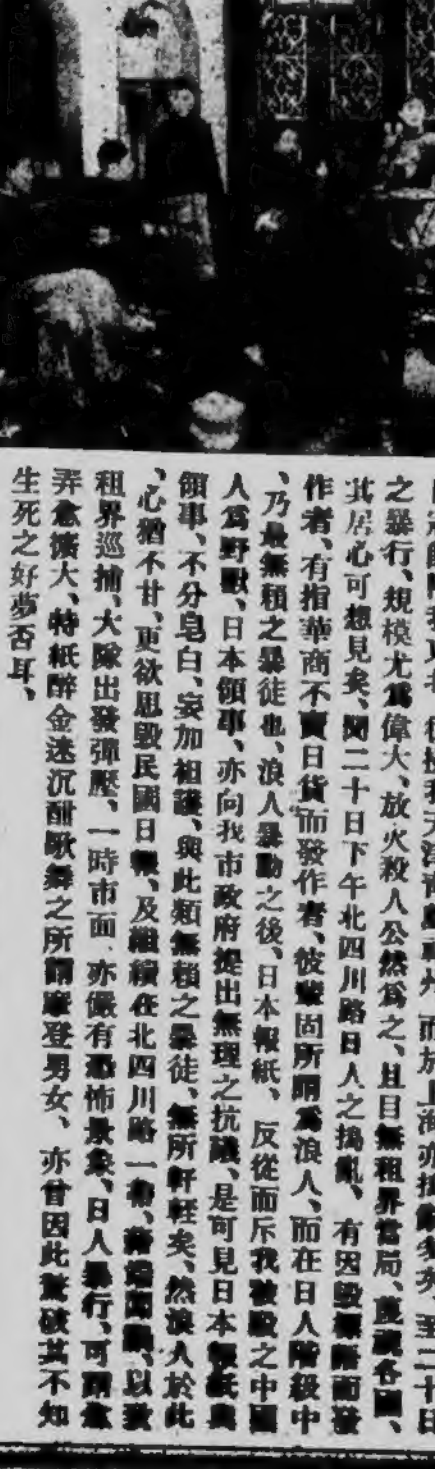 而於上海亦 至二十日
之暴行、規模尤爲偉大、放火殺人公然爲之、且目無租界當局、蔑視各國、
其居心可想見矣、聞二十日下午北四川路日人之搗亂、有因毀標語而發
作者、有指華商不賣日貨而發作者、彼輩固所謂爲浪人、而在日人階級中
、乃最無賴之暴徒也、浪人暴動之後、日本報紙、反從而斥我被毆之中國
人爲野獸、日本領事、亦向我市政府提出無理之抗議、是可見日本報紙與
領事、不分皂白、妄加袒護、與此類無賴之暴徒、無所軒輊矣、然浪人於此
、心猶不甘、更欲思毀民國日報、及繼續在北四川路一帶、以致
租界巡捕、大隊出發彈壓、一時市面、亦儼有恐怖景象、日人暴行、可謂愈
弄愈擴大、特紙醉金迷沉酣歌舞之所謂摩登男女、亦曾因此驚破其不知
生死之好夢否耳、